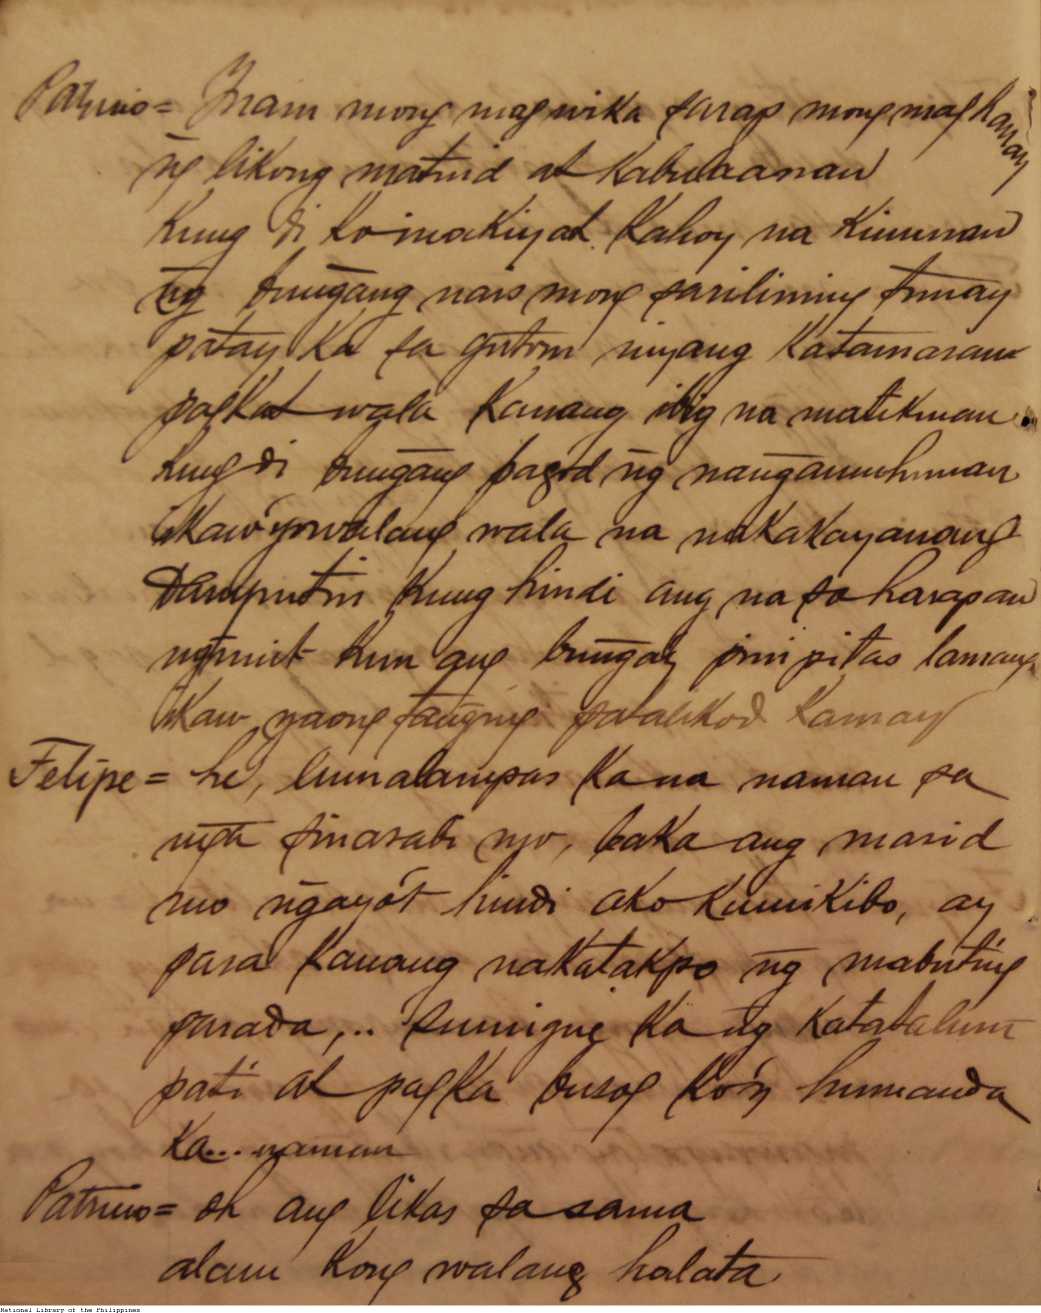 Patricio = Inam mong magwika sarap mong maghanay
ñg likong matuid at kabulaanan
kung di ko inakiyat kahoy na kinunan
ñg buñgang nais mong sarilining tunay
patay ka sa gutom niyang katamaran
pagkat wala kanang ibig na matikman
kung di buñgang pagod ñg nañgamuhunan
ikaw'y walang wala na nakakayanang
damputin kung hindi ang na sa harapan
ñguni't kun ang buñgay pinipitas lamang
ikaw yaong tañging patalikod kamay
Felipe = he, lumalampas ka na naman sa
mga sinasabi mo, baka ang masid
mo ñgayo't hindi ako kumikibo, ay
para kanang nakatakpo ñg mabuting
parada,.. sumigue ka ñg katatalum
pati at pagka busog ko'y humanda
ka... naman
Patricio = oh ang likas sa sama
alam kong walang halata
National Library of the Philippines